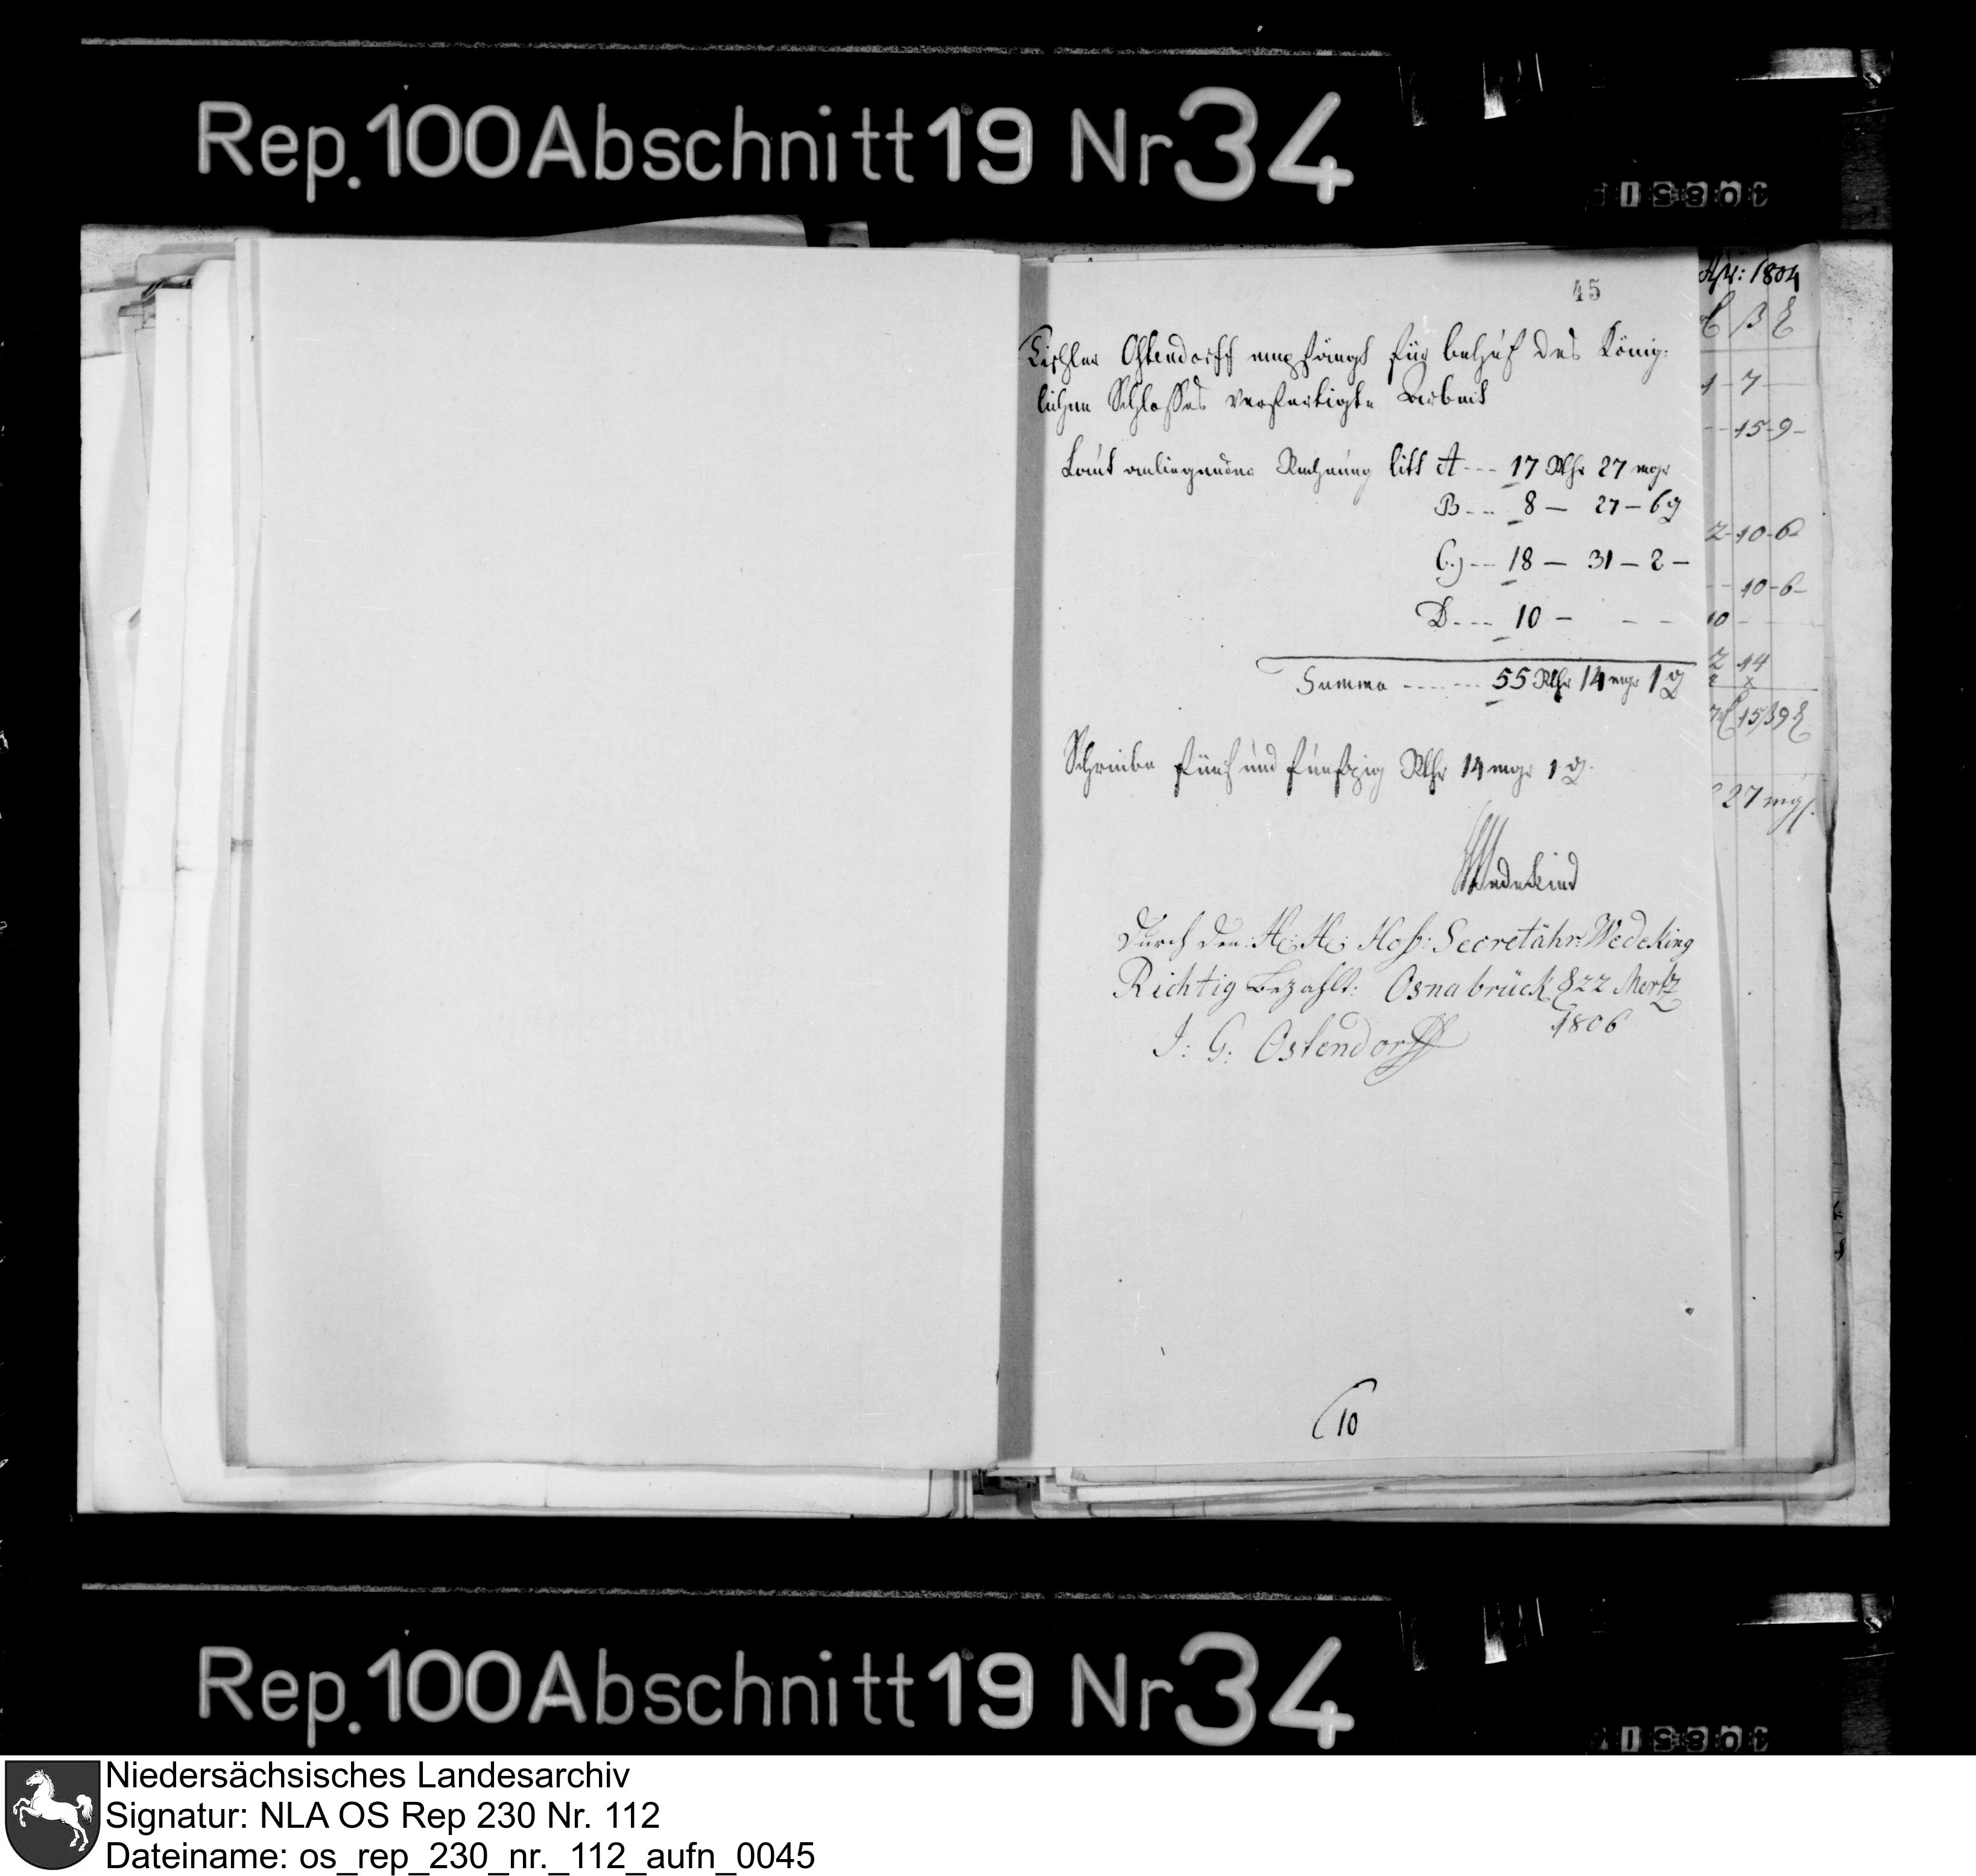 Rep. 100 Abschnitt 19 Nr 34
45
Tischler Ostendorff empfängt für behuf des König:
lichen Schlosses verfertigte Arbeit
Laut anliegender Rechnung litt A --- 17 Rthr 27 mgr
B --- 8 — 27 — 6 ₰
C.) --- 18 — 31 — 2 —
D --- 10 — - -
Summa ------- 55 Rthr 14 mgr 1 ₰
Schreibe fünf und funfzig Rthr 14 mgr 1 ₰.
Wedekind
Durch den: H: H: Hof: Secretähr: Wedeking
Richtig Bezahlt: Osnabrück 22 Mertz
1806
J: G: Ostendorff
10
1804
1 - 7
15 - 9 -
2 - 10 - 6
10 - 6 -
10 -
2 14
15 ß 9
27 mgr.
Rep. 100 Abschnitt 19 Nr 34
Niedersächsisches Landesarchiv
Signatur: NLA OS Rep 230 Nr. 112
Dateiname: os_rep_230_nr._112_aufn_0045